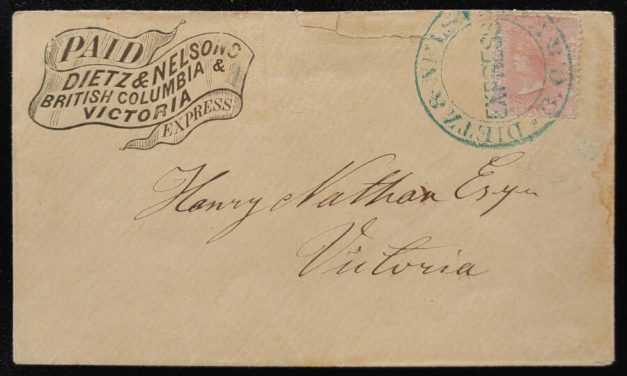 PAID
DIETZ & NELSONS
BRITISH COLUMBIA &
VICTORIA
EXPRESS
DIETZ &
EXPRESS
Henry Nathan Esqr
Victoria